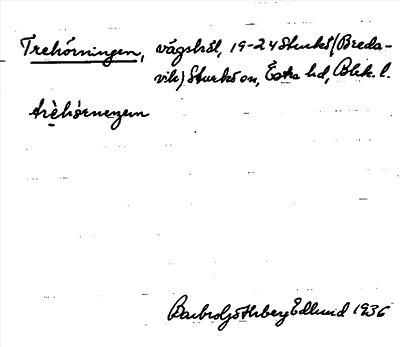 Trehörningen, vågskål, 19-24 Sturkö (Breda-
vik) Sturkö sn, Östra hd, Blek. l.
trèhö̀rnengen
Barbro Göthberg Edlund 1936